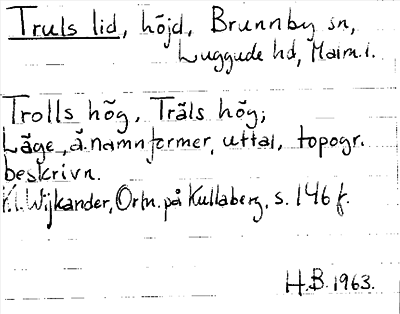 Truls lid, höjd, Brunnby sn,
Luggude hd, Malm. l.
Trolls hög, Träls hög;
Läge, ä. namnformer, uttal, topogr.
beskrivn.
K. Wijkander, Ortn. på Kullaberg, s. 146 f.
H.B. 1963.